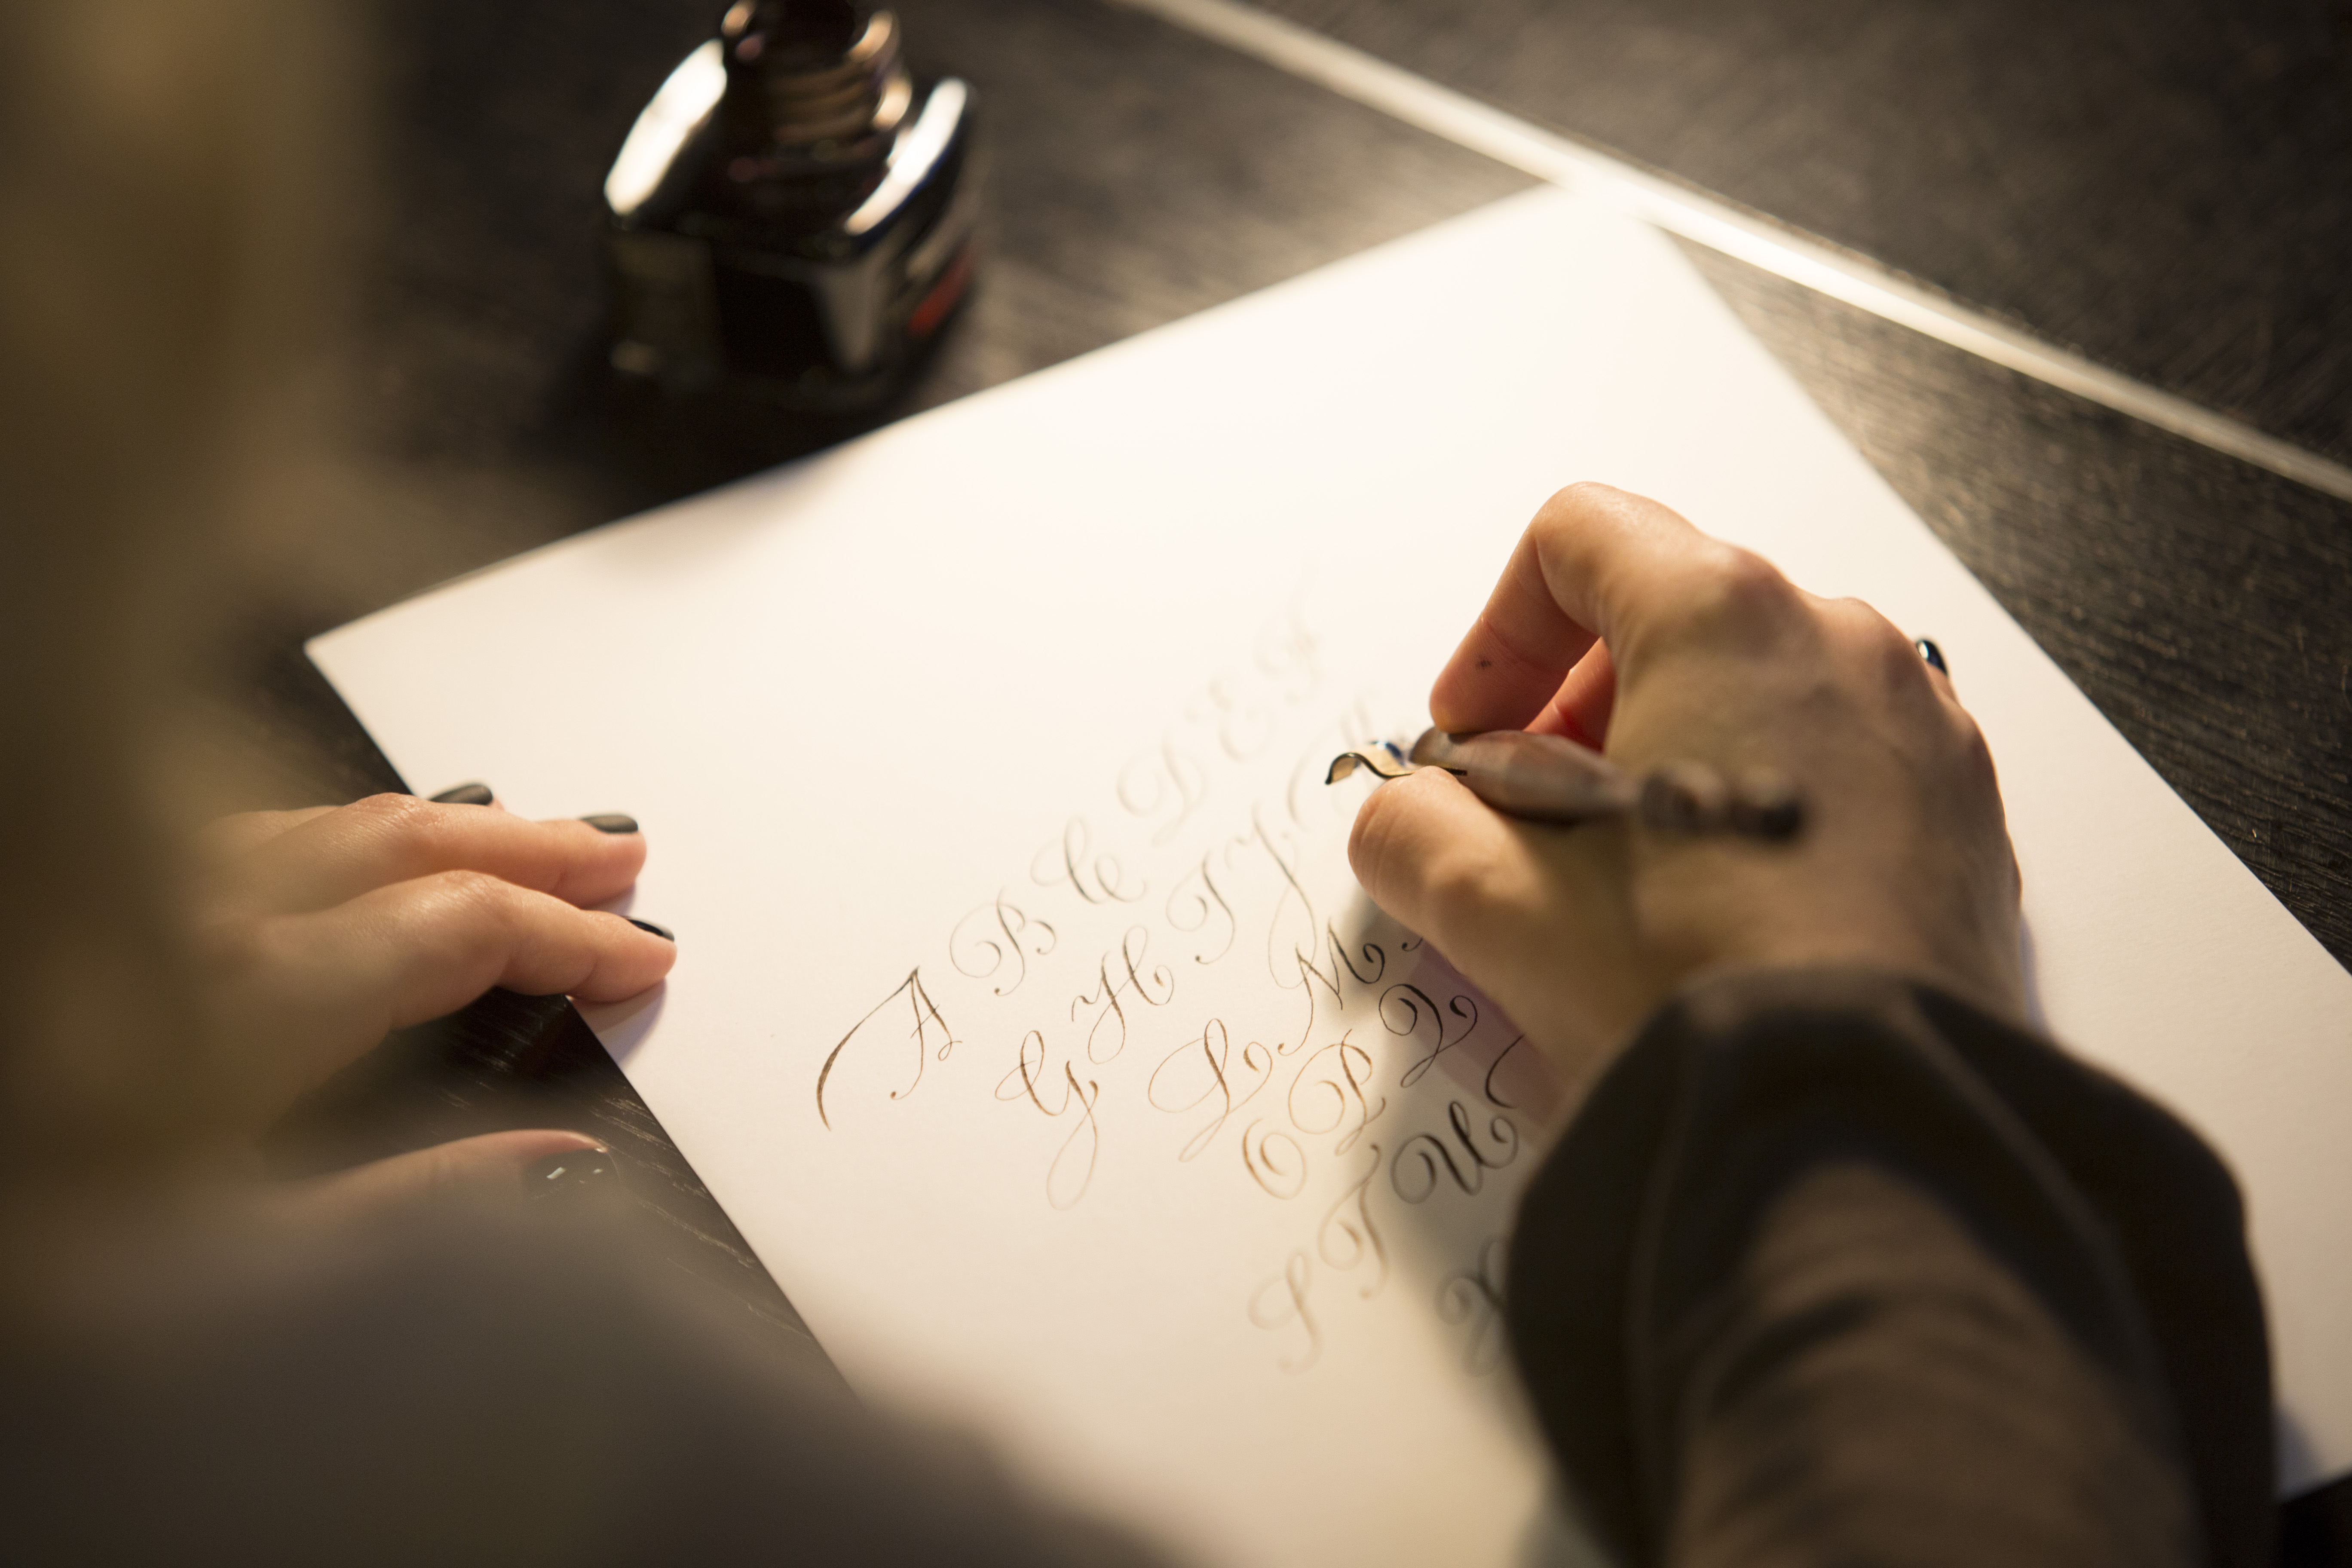 A B C D E F
G H I J K
L M
O P Q
S T U